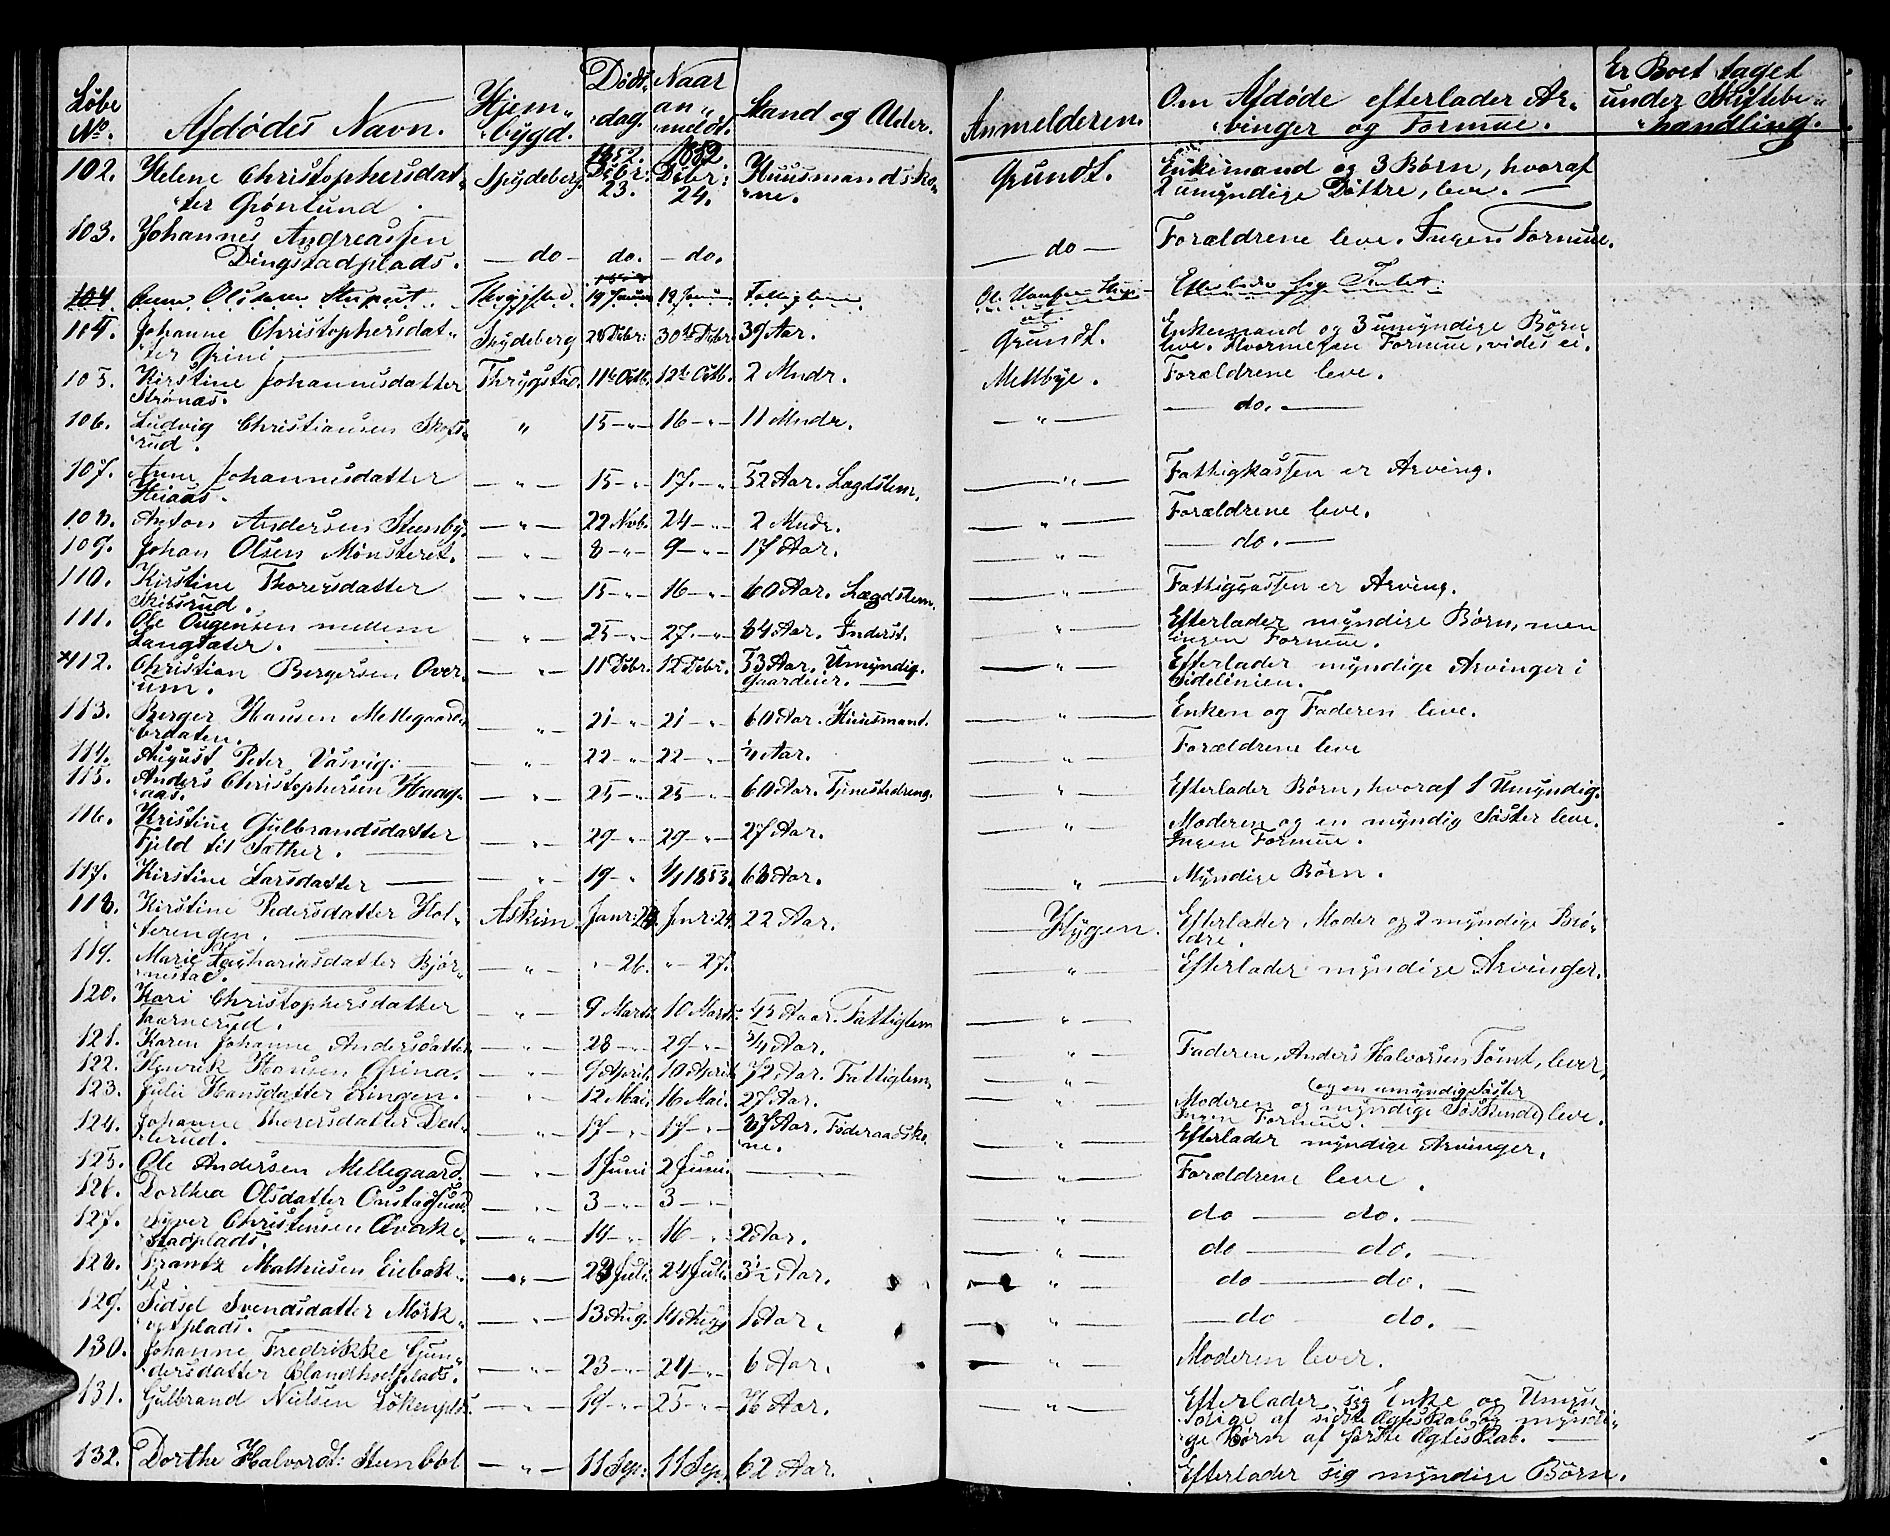 Løbe No. Afdødes Navn. Hjembygd. Dødsdag. Naar anmeldt. Stand og Alder. Anmelderen. Om Afdøde efterlader Arvinger og Formue. Er Boet taget under Skiftebehandling.
102. Helene Christophersdat- Spydeberg 1852. Debr: 23. 1882 Debr: 24. Huusmandsko- Grundt. Enkemand og 3 Børn, hvoraf
ter Grønlund. ne. 2 umyndige Døttre, leve. —
103. Johannes Andreassen
Dingstadplads. — do — do. — do. — do — Forældrene leve. Ingen Formue.
104 Anne Olsdatter Trygstad. 19 Januar 19 Januar Fattiglem. Ole Hansen Efterlader sig Intet.
104. Johanne Christophersdat- Spydeberg 28 Debr: 30te Debr: 39 Aar. Grundt. Enkemand og 3 umyndige Børn
ter Grini — leve. Hvormegen Formue, vides ei.
105. Kirstine Johannesdatter Thrygstad. 11te Octb. 12te Octb. 2 Mndr. Mellbye. Forældrene leve.
Strønæs.
106. Ludvig Christiansen Skofs- " 15 — " 16 — " 11 Mndr. — " — — do. —
rud.
107. Anne Johannesdatter — " — 15 — " 17 — " 52 Aar. Lægdslem. — " — Fattigkassen er Arving.
108. Anton Andersen Stenby. — " — 22 Nvb. 24 — " 2 Mndr. — " — Forældrene leve.
109. Johan Olsen Mønsteret. — " — 8 — " 9 — " 17 Aar. — " — — do. —
110. Kirstine Thorersdatter — " — 15 — " 16 — " 60 Aar. Lægdslem. — " — Fattigcassen er Arving.
Skibsrud.
111. Ole Ougensen mellem — " — 25 — " 27. — " 84 Aar. Inderst. — " — Efterlader myndige Børn, men
Langsæter. — ingen Formue.
112. Christian Bergersen Over- — " — 11 Debr. 12 Debr. 53 Aar. Umyndig. — " — Efterlader myndige Arvinger i
um. Gaardeier. — Sidelinien.
113. Berger Hansen Mellegaard- — " — 21 — " 21 — " 60 Aar. Huusmand. — " — Enken og Faderen leve.
114. August Peter Vasvig. — — " — 22 — " 22 — " 4 Aar. — " — Forældrene leve
115. Anders Christophersen Haag- — " — 25 — " 25 — " 60 Aar. Tjenestedreng. — " — Efterlader Børn, hvoraf 1 Umyndig.
aas.
116. Kristine Gulbrandsdatter — " — 29 — " 29 — " 27 Aar. — " — Moderen og en myndig Søster leve.
Fjeld til Sather. — Ingen Formue.
117. Kirstine Larsdatter — — " — 19 — " 1/1 1853. 68 Aar. — " — Myndige Børn.
118. Kirstine Pedersdatter Hol- Askim. Janr: 23 Jnr: 24. 22 Aar. Hygen. Efterlader Moder og 2 myndige Brø-
terengen. — dre.
119. Marie Zachariasdatter Bjør- — " — " — 26. " — 27. — " — Efterlader myndige Arvinger.
nestad.
120. Kari Christophersdatter — " — 9 Marts 10 Marts. 45 Aar. Fattiglem — " —
121. Karen Johanne Andersdatter — " — 28 — " 29 — " 3/4 Aar. — " — Faderen, Anders Halvorsen Tomt, lever.
122. Henrik Hansen Grina. — " — 9 April. 10 April. 72 Aar. Fattiglem. — " —
123. Julie Hansdatter Lingen. — " — 12 Mai. 16 Mai. 27 Aar. — " — Moderen og myndige Søskende, leve. (og en umyndig Søster
Ingen Formue.
124. Johanne Thorersdatter Dæh- — " — 17 — " 17 — " 87 Aar. Føderaadsko- — " — Efterlader myndige Arvinger.
lerud. — ne.
125. Ole Andersen Mellegaard. — " — 1 Juni 2 Juni — — " — Forældrene leve.
126. Dorthea Olsdatter Onstadsund — " — 3 — " 3 — " — " — do — do. —
127. Syver Christensen Qvake- — " — 14 — " 16 — " 2 Aar. — " — do — do. —
stadplads.
128. Frantz Mathiesen Eiebak- — " — 23 Juli. 24 Juli. 3½ Aar. — " — do — do. —
k
129. Sidsel Svendsdatter Mørk- — " — 13 Aug. 14 Aug 1 Aar. — " — — do — do. —
130. Johanne Fredrikke Gun- — " — 23 — " 24 — " 6 Aar. — " — Moderen lever.
dersdatter
131. Gulbrand Nielsen Løkenplds. — " — 19 — " 25 — " 76 Aar. — " — Efterlader sig Enke og Umyn-
dige af sidste Ægteskab, og myndi-
ge Børn af første Ægteskab. —
132. Dorthe Halvorsdt: Stenbøl — " — 11 Sep: 11 Sep: 62 Aar. Efterlader sig myndige Børn.